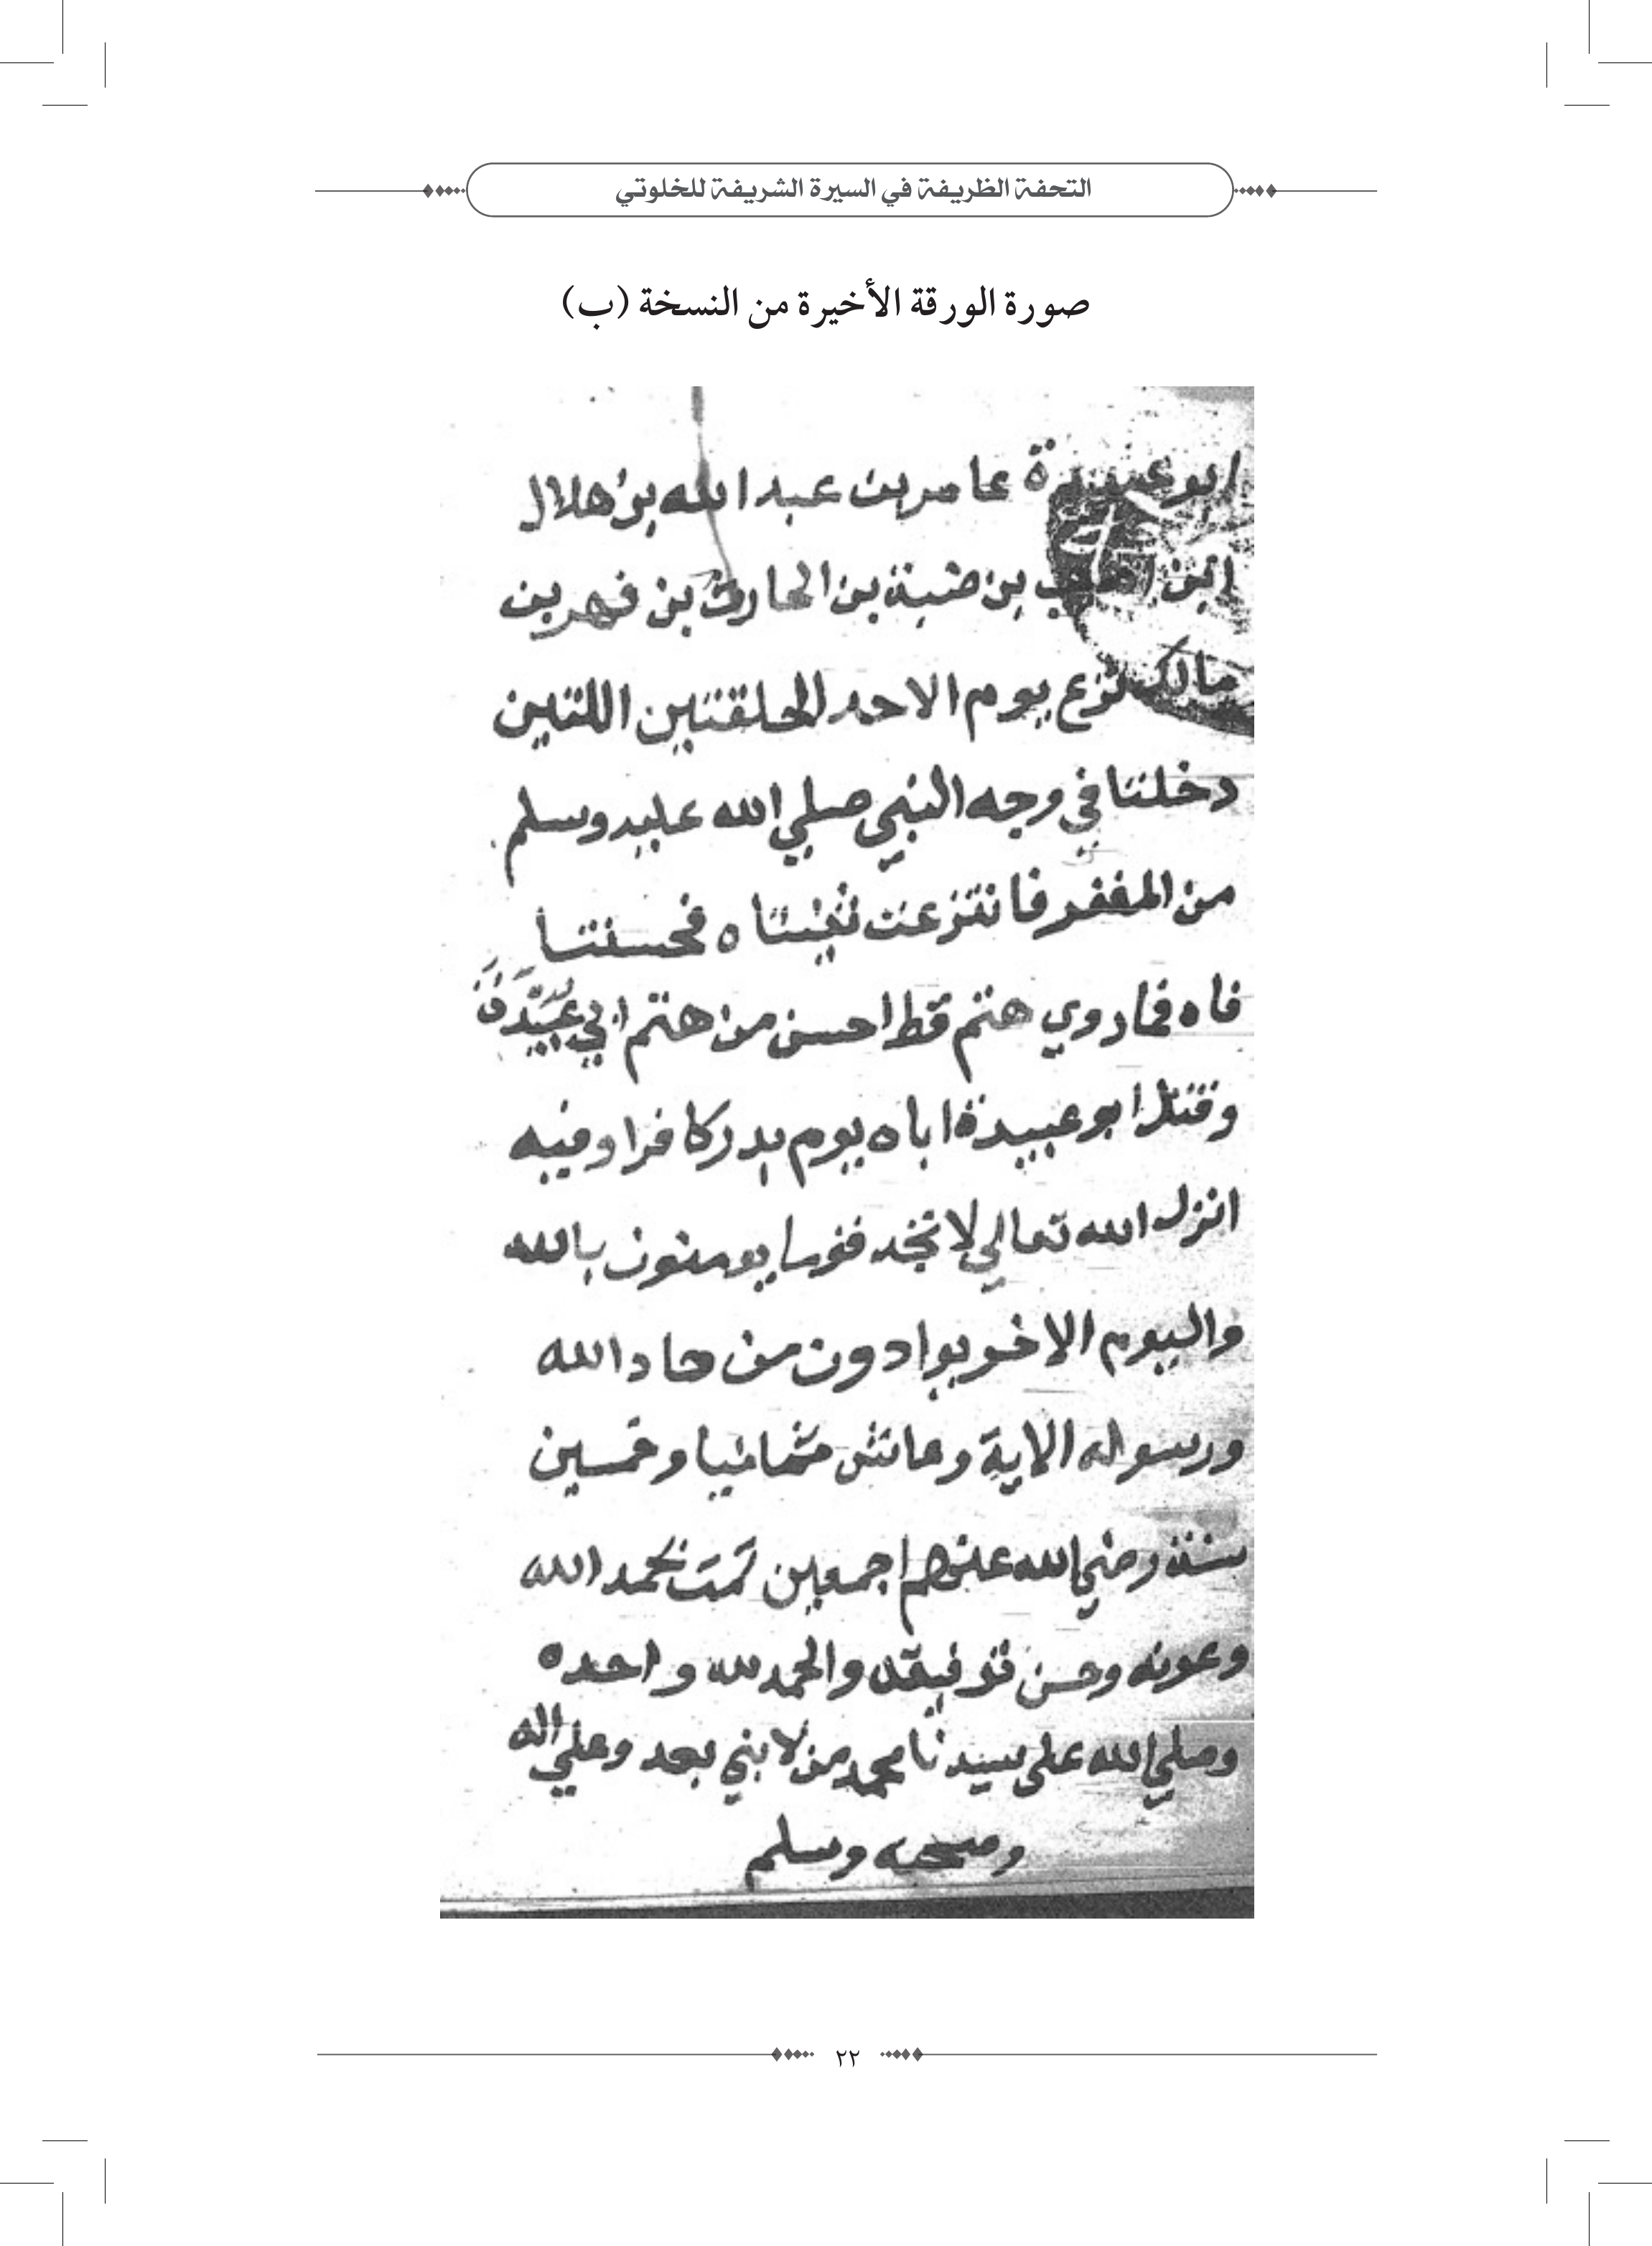 التحفة الظريفة في السيرة الشريفة للخلوتي
صورة الورقة الأخيرة من النسخة (ب)
ابو عبيدة عامر بن عبد الله بن هلال
ابن بن ضبة بن الحارث بن فهر بن
مالك نزع يوم الاحد الحلقتين اللتين
دخلتا في وجه النبي صلي الله عليه وسلم
من المغفر فانتزعت ثنيتاه فحسنتا
فاه فما روي هتم قط احسن من هتم ابي عبيدة
وقتل ابو عبيدة اباه يوم بدر كافرا وفيه
انزل الله تعالي لا تجد قوما يومنون بالله
واليوم الاخر يوادون من حاد الله
ورسوله الاية وعاش ثمانيا وخمسين
سنة رضي الله عنهم اجمعين تمت بحمد الله
وعونه وحسن توفيقه والحمد لله واحده
وصلي الله على سيدنا محمد من لا نبي بعد وعلي اله
وصحبه وسلم
٢٢